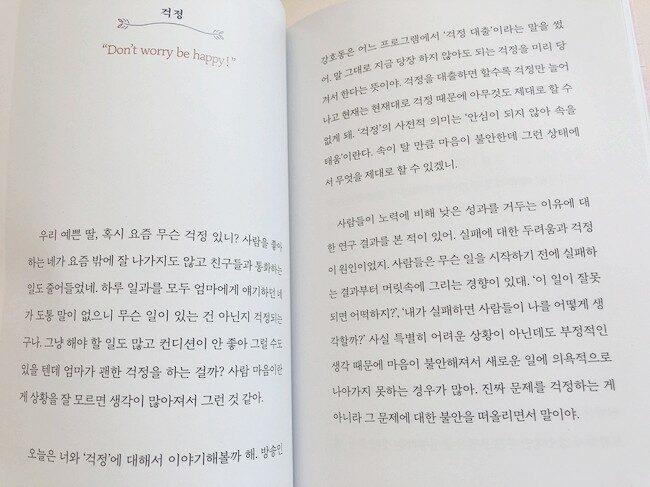 걱정
“Don't worry be happy!”
우리 예쁜 딸, 혹시 요즘 무슨 걱정 있니? 사람을 좋아
하는 네가 요즘 밖에 잘 나가지도 않고 친구들과 통화하는
일도 줄어들었네. 하루 일과를 모두 엄마에게 얘기하던 네
가 도통 말이 없으니 무슨 일이 있는 건 아닌지 걱정되는
구나. 그냥 해야 할 일도 많고 컨디션이 안 좋아 그럴 수도
있을 텐데 엄마가 괜한 걱정을 하는 걸까? 사람 마음이란
게 상황을 잘 모르면 생각이 많아져서 그런 것 같아.
오늘은 너와 ‘걱정’에 대해서 이야기해볼까 해. 방송인
강호동은 어느 프로그램에서 ‘걱정 대출’이라는 말을 썼
어. 말 그대로 지금 당장 하지 않아도 되는 걱정을 미리 당
겨서 한다는 뜻이야. 걱정을 대출하면 할수록 걱정만 늘어
나고 현재는 현재대로 걱정 때문에 아무것도 제대로 할 수
없게 돼. ‘걱정’의 사전적 의미는 ‘안심이 되지 않아 속을
태움’이란다. 속이 탈 만큼 마음이 불안한데 그런 상태에
서 무엇을 제대로 할 수 있겠니.
사람들이 노력에 비해 낮은 성과를 거두는 이유에 대
한 연구 결과를 본 적이 있어. 실패에 대한 두려움과 걱정
이 원인이었지. 사람들은 무슨 일을 시작하기 전에 실패하
는 결과부터 머릿속에 그리는 경향이 있대. ‘이 일이 잘못
되면 어떡하지?’, ‘내가 실패하면 사람들이 나를 어떻게 생
각할까?’ 사실 특별히 어려운 상황이 아닌데도 부정적인
생각 때문에 마음이 불안해져서 새로운 일에 의욕적으로
나아가지 못하는 경우가 많아. 진짜 문제를 걱정하는 게
아니라 그 문제에 대한 불안을 떠올리면서 말이야.